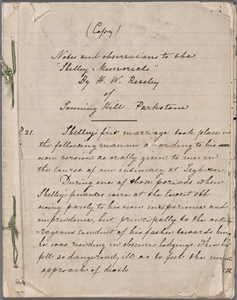 (Copy)
Notes and observations to the
"Shelley Memorials"
By H. W. Reveley
of
Sunning Hill Parkstone
P. 21. Shelley's first marriage took place in
the following manner according to his own
version as orally given to me in
the course of our intimacy at
During one of those periods when
Shelley's finances were at the lowest ebb
owing partly to his own inexperience and
imprudence, but principally to the
conduct of his father towards him
he was residing in obscure lodgings when he
fell so dangerously ill as to feel the
approach of death